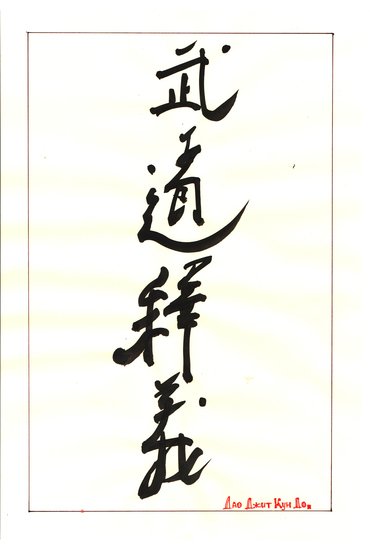 武道釋義
Дао Джит Кун До.